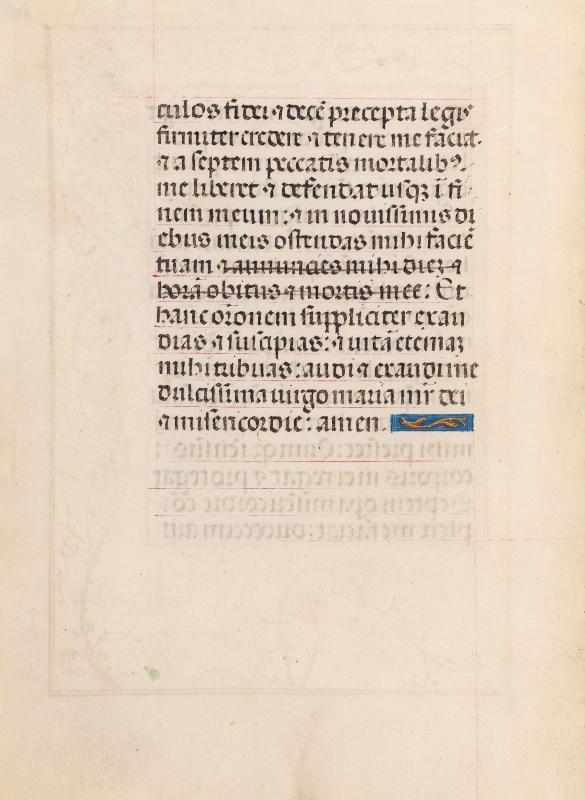 culos fidei ⁊ decē precepta legis
firmiter credere ⁊ tenere me faciat.
⁊ a septem peccatis mortalibꝰ.
me liberet ⁊ defendat usqꝫ ī fi
nem meum: ⁊ in nouissimis di
ebus meis ostendas mihi faciē
tuam ⁊ annuncies mihi diez ⁊
horā obitus ⁊ mortis mee: Et
hanc orōnem suppliciter exau
dias ⁊ suscipias: ⁊ uitā eternaz
mihi tribuas: audi ⁊ exaudi me
dulcissima uirgo maria mr̄ dei
⁊ misericordie: amen.